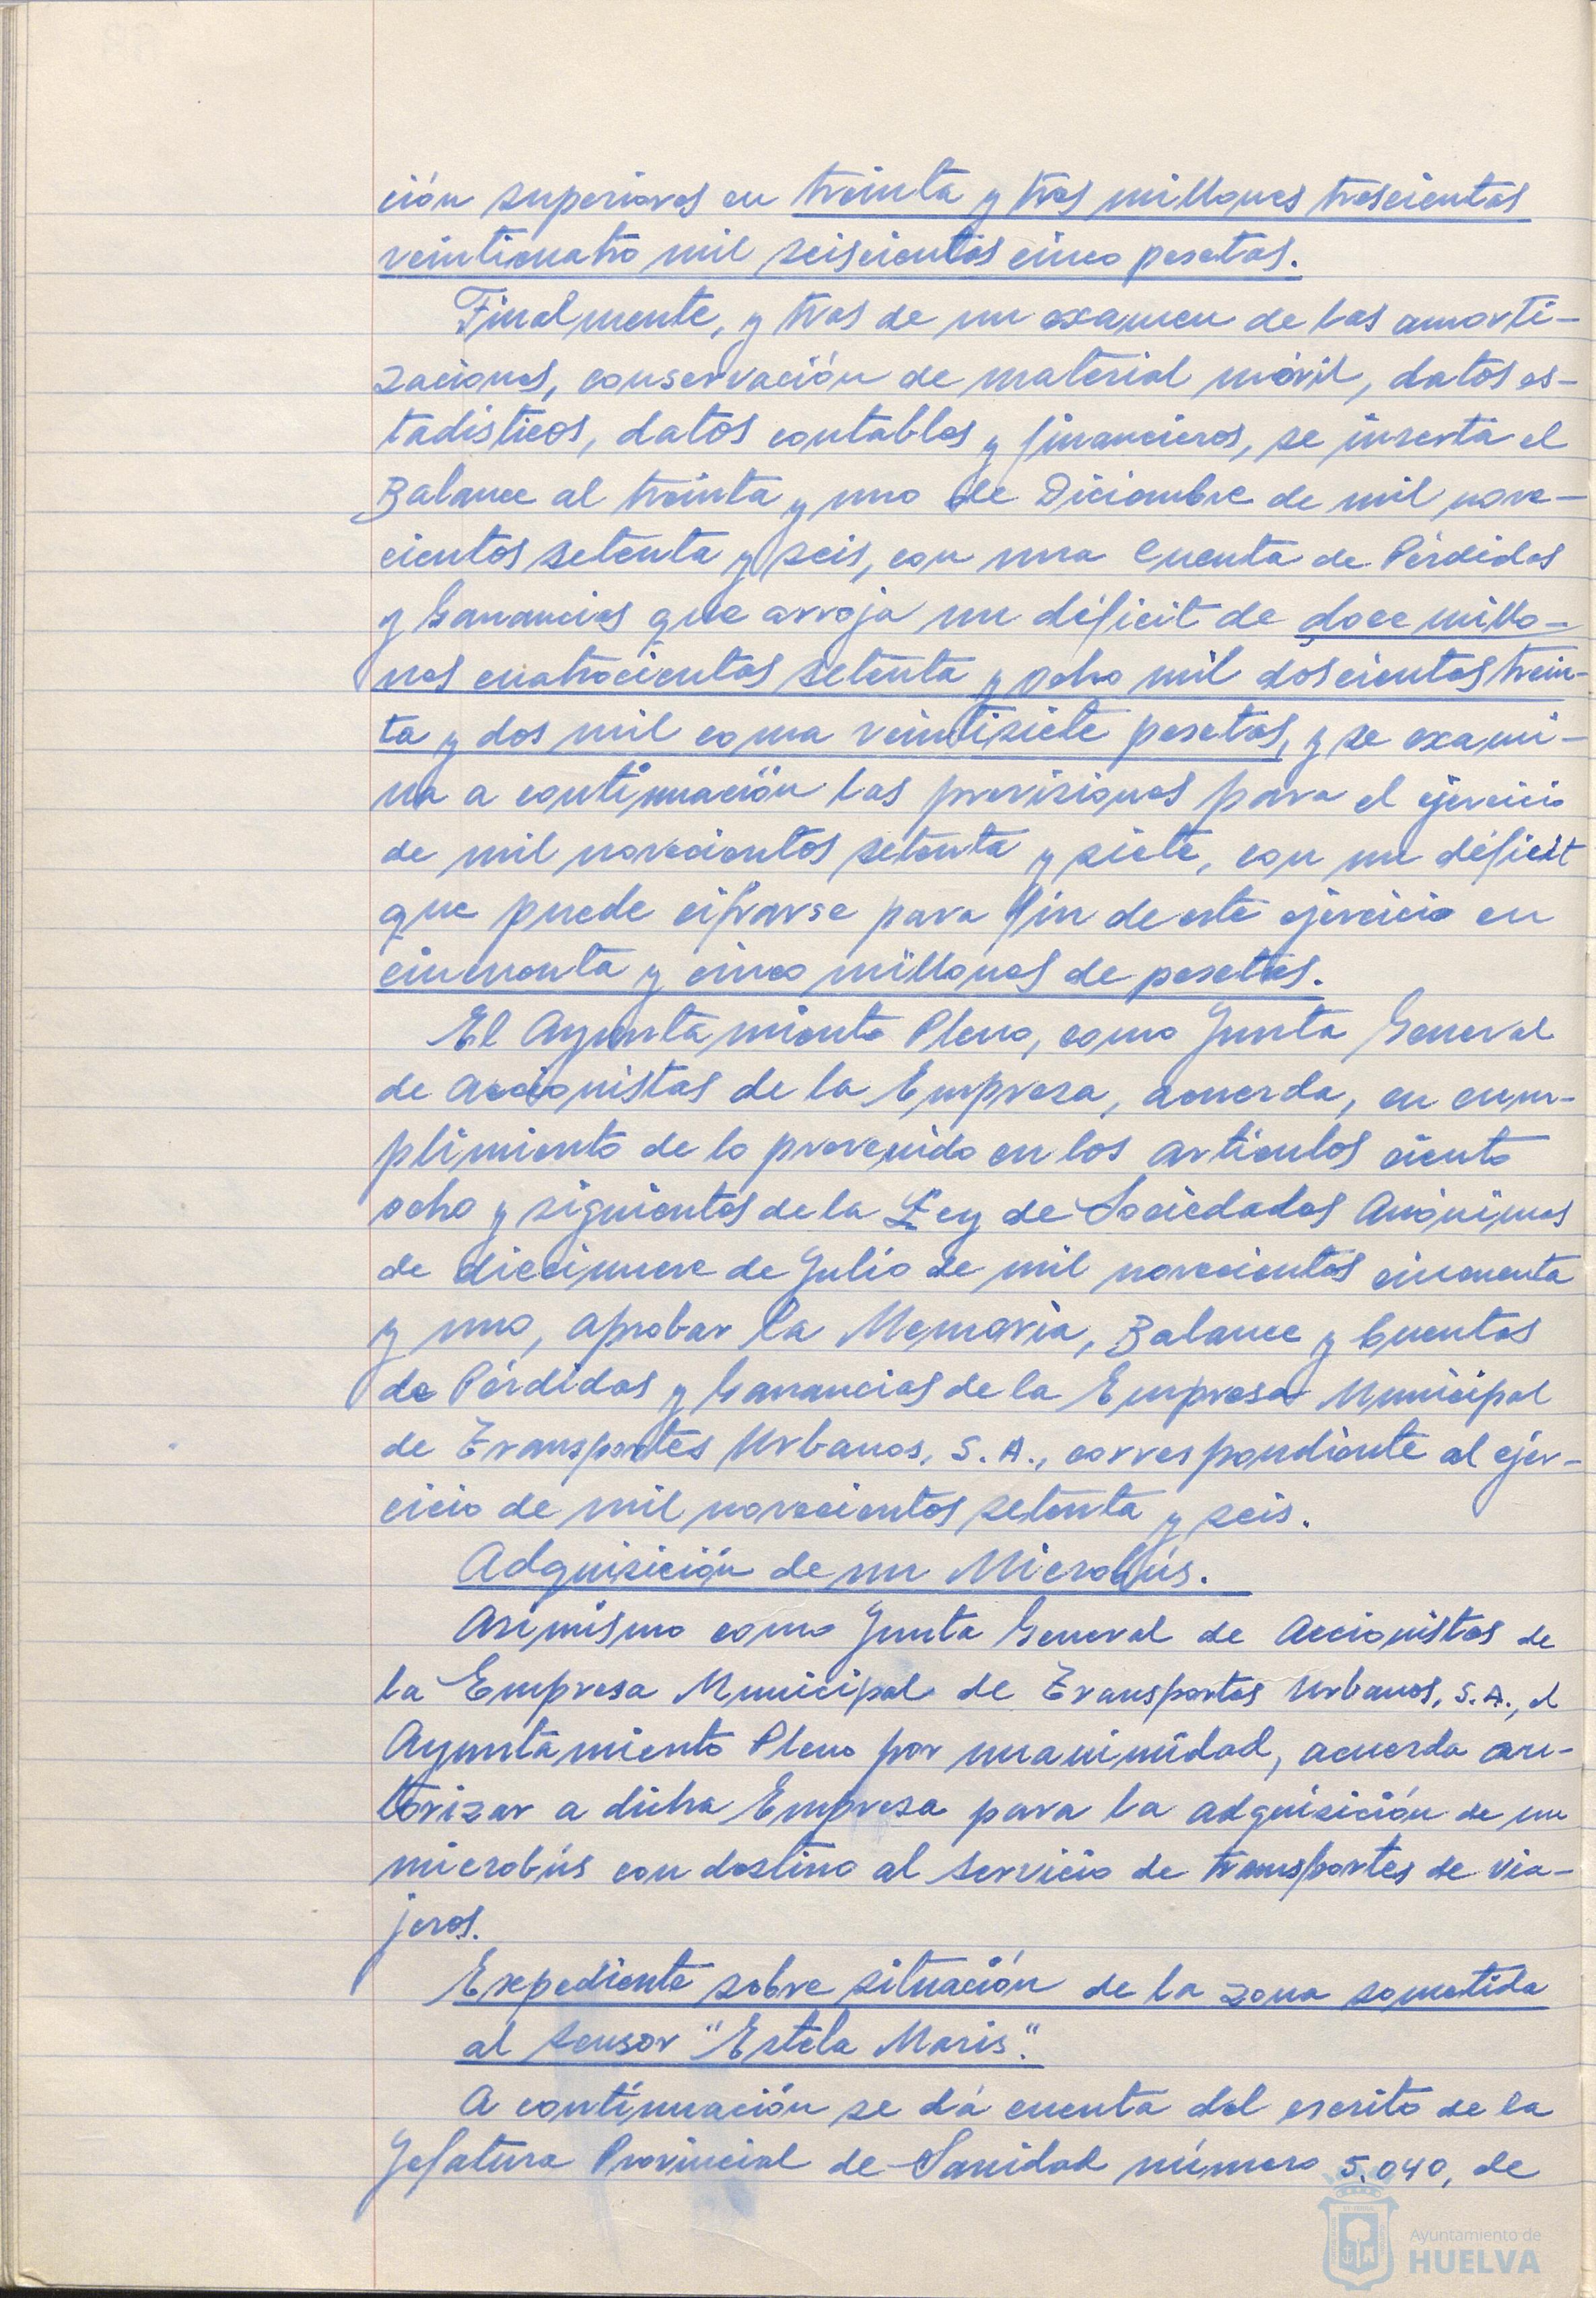 ción superiores en treinta y tres millones trescientas
veinticuatro mil seiscientas cinco pesetas.
Finalmente, y tras de un examen de las amorti-
zaciones, conservación de material móvil, datos es-
tadísticos, datos contables y financieros, se inserta el
Balance al treinta y uno de Diciembre de mil nove-
cientos setenta y seis, con una Cuenta de Pérdidas
y Ganancias que arroja un déficit de doce millo-
nes cuatrocientas setenta y ocho mil doscientas trein-
ta y dos mil coma veintisiete pesetas, y se exami-
na a continuación las previsiones para el ejercicio
de mil novecientos setenta y siete, con un déficit
que puede cifrarse para fin de este ejercicio en
cincuenta y cinco millones de pesetas.
El Ayuntamiento Pleno, como Junta General
de Accionistas de la Empresa, acuerda, en cum-
plimiento de lo prevenido en los artículos ciento
ocho y siguientes de la Ley de Sociedades Anónimas
de diecinueve de Julio de mil novecientos cincuenta
y uno, aprobar la Memoria, Balance y Cuentas
de Pérdidas y Ganancias de la Empresa Municipal
de Transportes Urbanos, S.A., correspondiente al ejer-
cicio de mil novecientos setenta y seis.
Adquisición de un Microbús.
Asimismo como Junta General de Accionistas de
la Empresa Municipal de Transportes Urbanos, S.A., el
Ayuntamiento Pleno por unanimidad, acuerda au-
torizar a dicha Empresa para la adquisición de un
microbús con destino al servicio de transportes de via-
jeros.
Expediente sobre situación de la zona sometida
al sensor "Estela Maris".
A continuación se dá cuenta del escrito de la
Jefatura Provincial de Sanidad número 5.040, de
Ayuntamiento de
HUELVA